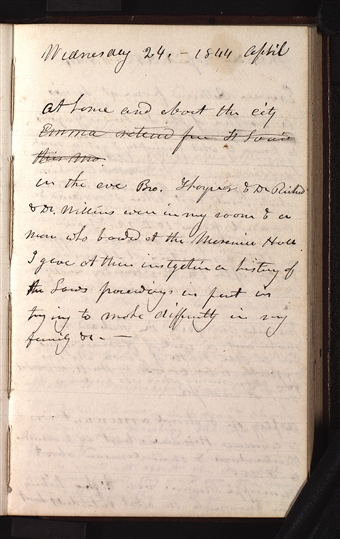 Wednesday 24. - 1844 April
At home and about the city
Emma retend fm St Louis
this mo.
in the eve Bro. Thayer & Dr Richard
& Dr Willims were in my room & a
man who boards at the Mansion House
I gave at their instgation a history of
the Laws proceedings in part in
trying to make difficulty in my
family &c. —